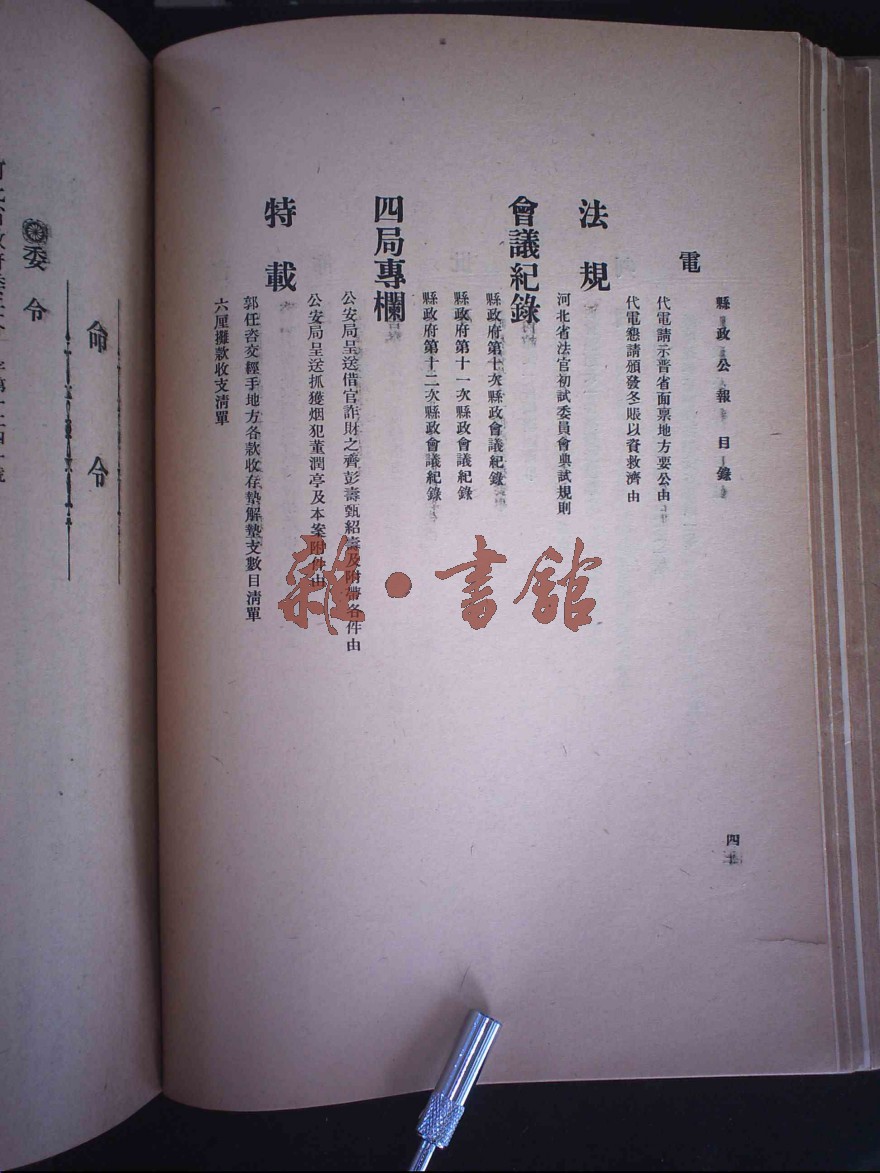 縣政公報 目錄
電
代電請示晋省面禀地方要公由
代電懇請頒發冬賑以資救濟由
法規
河北省法官初試委員會典試規則
會議紀錄
縣政府第十次縣政會議紀錄
縣政府第十一次縣政會議紀錄
縣政府第十二次縣政會議紀錄
四局專欄
公安局呈送借官詐財之齊彭壽甄紹壽及附帶各件由
公安局呈送抓獲烟犯董潤亭及本案附件由
特載
郭任咨交經手地方各款收存墊解墊支數目清單
六厘攤款收支清單
四
雜·書館
命令
委令